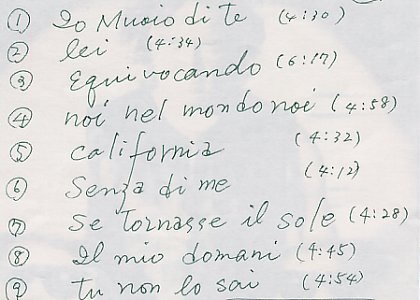 ① Io Muoio di te (4:30)
② lei (4:34)
③ Equivocando (6:17)
④ noi nel mondo noi (4:58)
⑤ california (4:32)
⑥ Senza di me (4:12)
⑦ Se Tornasse il sole (4:28)
⑧ Il mio domani (4:45)
⑨ tu non lo sai (4:54)